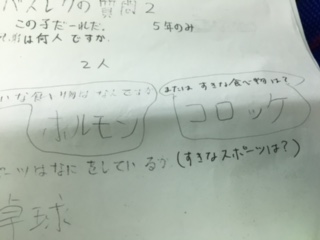 バスレクの質問2
この子だーれだ. 5年のみ
は何人ですか.
2人
いな食い物はなんですか
または すきな食べ物は?
ホルモン
コロッケ
ーツはなにをしているか(すきなスポーツは?)
卓球